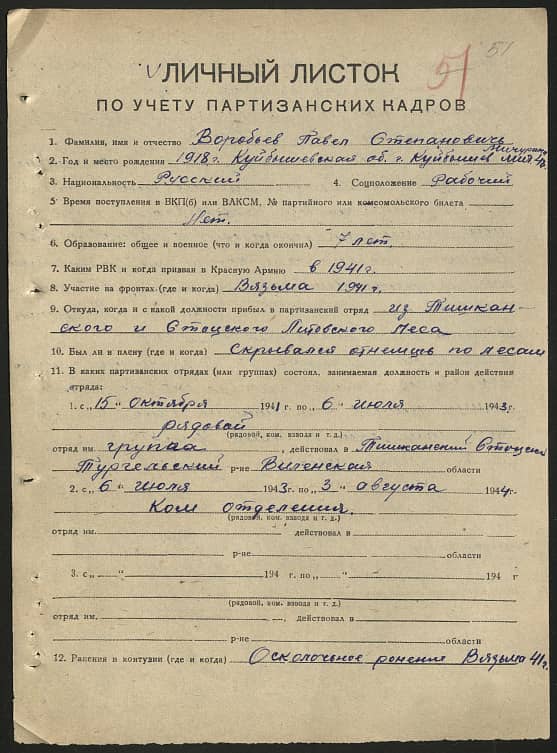 51 51
ЛИЧНЫЙ ЛИСТОК
ПО УЧЕТУ ПАРТИЗАНСКИХ КАДРОВ
1. Фамилия, имя и отчество Воробьев Павел Степановичь
2. Год и место рождения 1918 г. Куйбышевская об. г. Куйбышев
3. Национальность Русский 4. Соцположение Рабочий
5. Время поступления в ВКП(б) или ВЛКСМ, № партийного или комсомольского билета
Нет.
6. Образование: общее и военное (что и когда окончил) 7 лет.
7. Каким РВК и когда призван в Красную Армию в 1941 г.
8. Участие на фронтах (где и когда) Вязьма 1941 г.
9. Откуда, когда и с какой должности прибыл в партизанский отряд из Тишкан-
ского и Стоцского Литовского Леса
10. Был ли в плену (где и когда) Скрывался отнемцев по лесам
11. В каких партизанских отрядах (или группах) состоял, занимаемая должность и район действия
отряда:
1. с „15“ октября 1941 г. по „6 июля 1943 г.
рядовой
(рядовой, ком. взвода и т. д.)
отряд им. група , действовал в Тишканский Стоцски
Тургельский р-не Виленская области
2. с „6“ июля 1943 г. по „3“ августа 1944 г.
Ком отделения.
(рядовой, ком. взвода и т. д.)
отряд им. действовал в
р-не области
3. с „ “ 194 г. по „ “ 194 г
(рядовой, ком. взвода и т. д.)
отряд им. , действовал в
р-не области
12. Ранения и контузии (где и когда) Осколочьное ронение Вязьма 41 г.